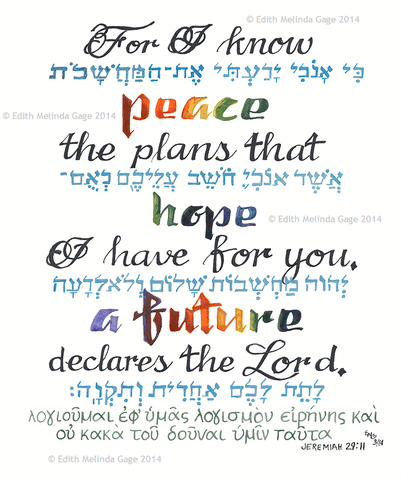 © Edith Melinda Gage 2014
For I know
כִּי אָנֹכִי יָדַעְתִּי אֶת־הַמַּחֲשָׁבֹת
peace
© Edith Melinda Gage 2014
the plans that
אֲשֶׁר אָנֹכִי חֹשֵׁב עֲלֵיכֶם נְאֻם־
hope
© Edith Melinda Gage 2014
I have for you.
יְהוָה מַחְשְׁבוֹת שָׁלוֹם וְלֹא לְרָעָה
a future
declares the Lord.
לָתֵת לָכֶם אַחֲרִית וְתִקְוָה׃
λογιοῦμαι ἐφ' ὑμᾶς λογισμὸν εἰρήνης καὶ
οὐ κακὰ τοῦ δοῦναι ὑμῖν ταῦτα
JEREMIAH 29:11
© Edith Melinda Gage 2014